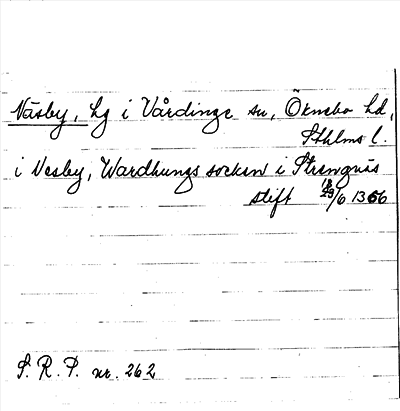 Väsby, hg i Vårdinge sn, Öknebo hd,
Sthlms l.
i Vesby, Wardhungs socken i Strengnäs
stift 29/6 1366
S. R. P. nr. 262